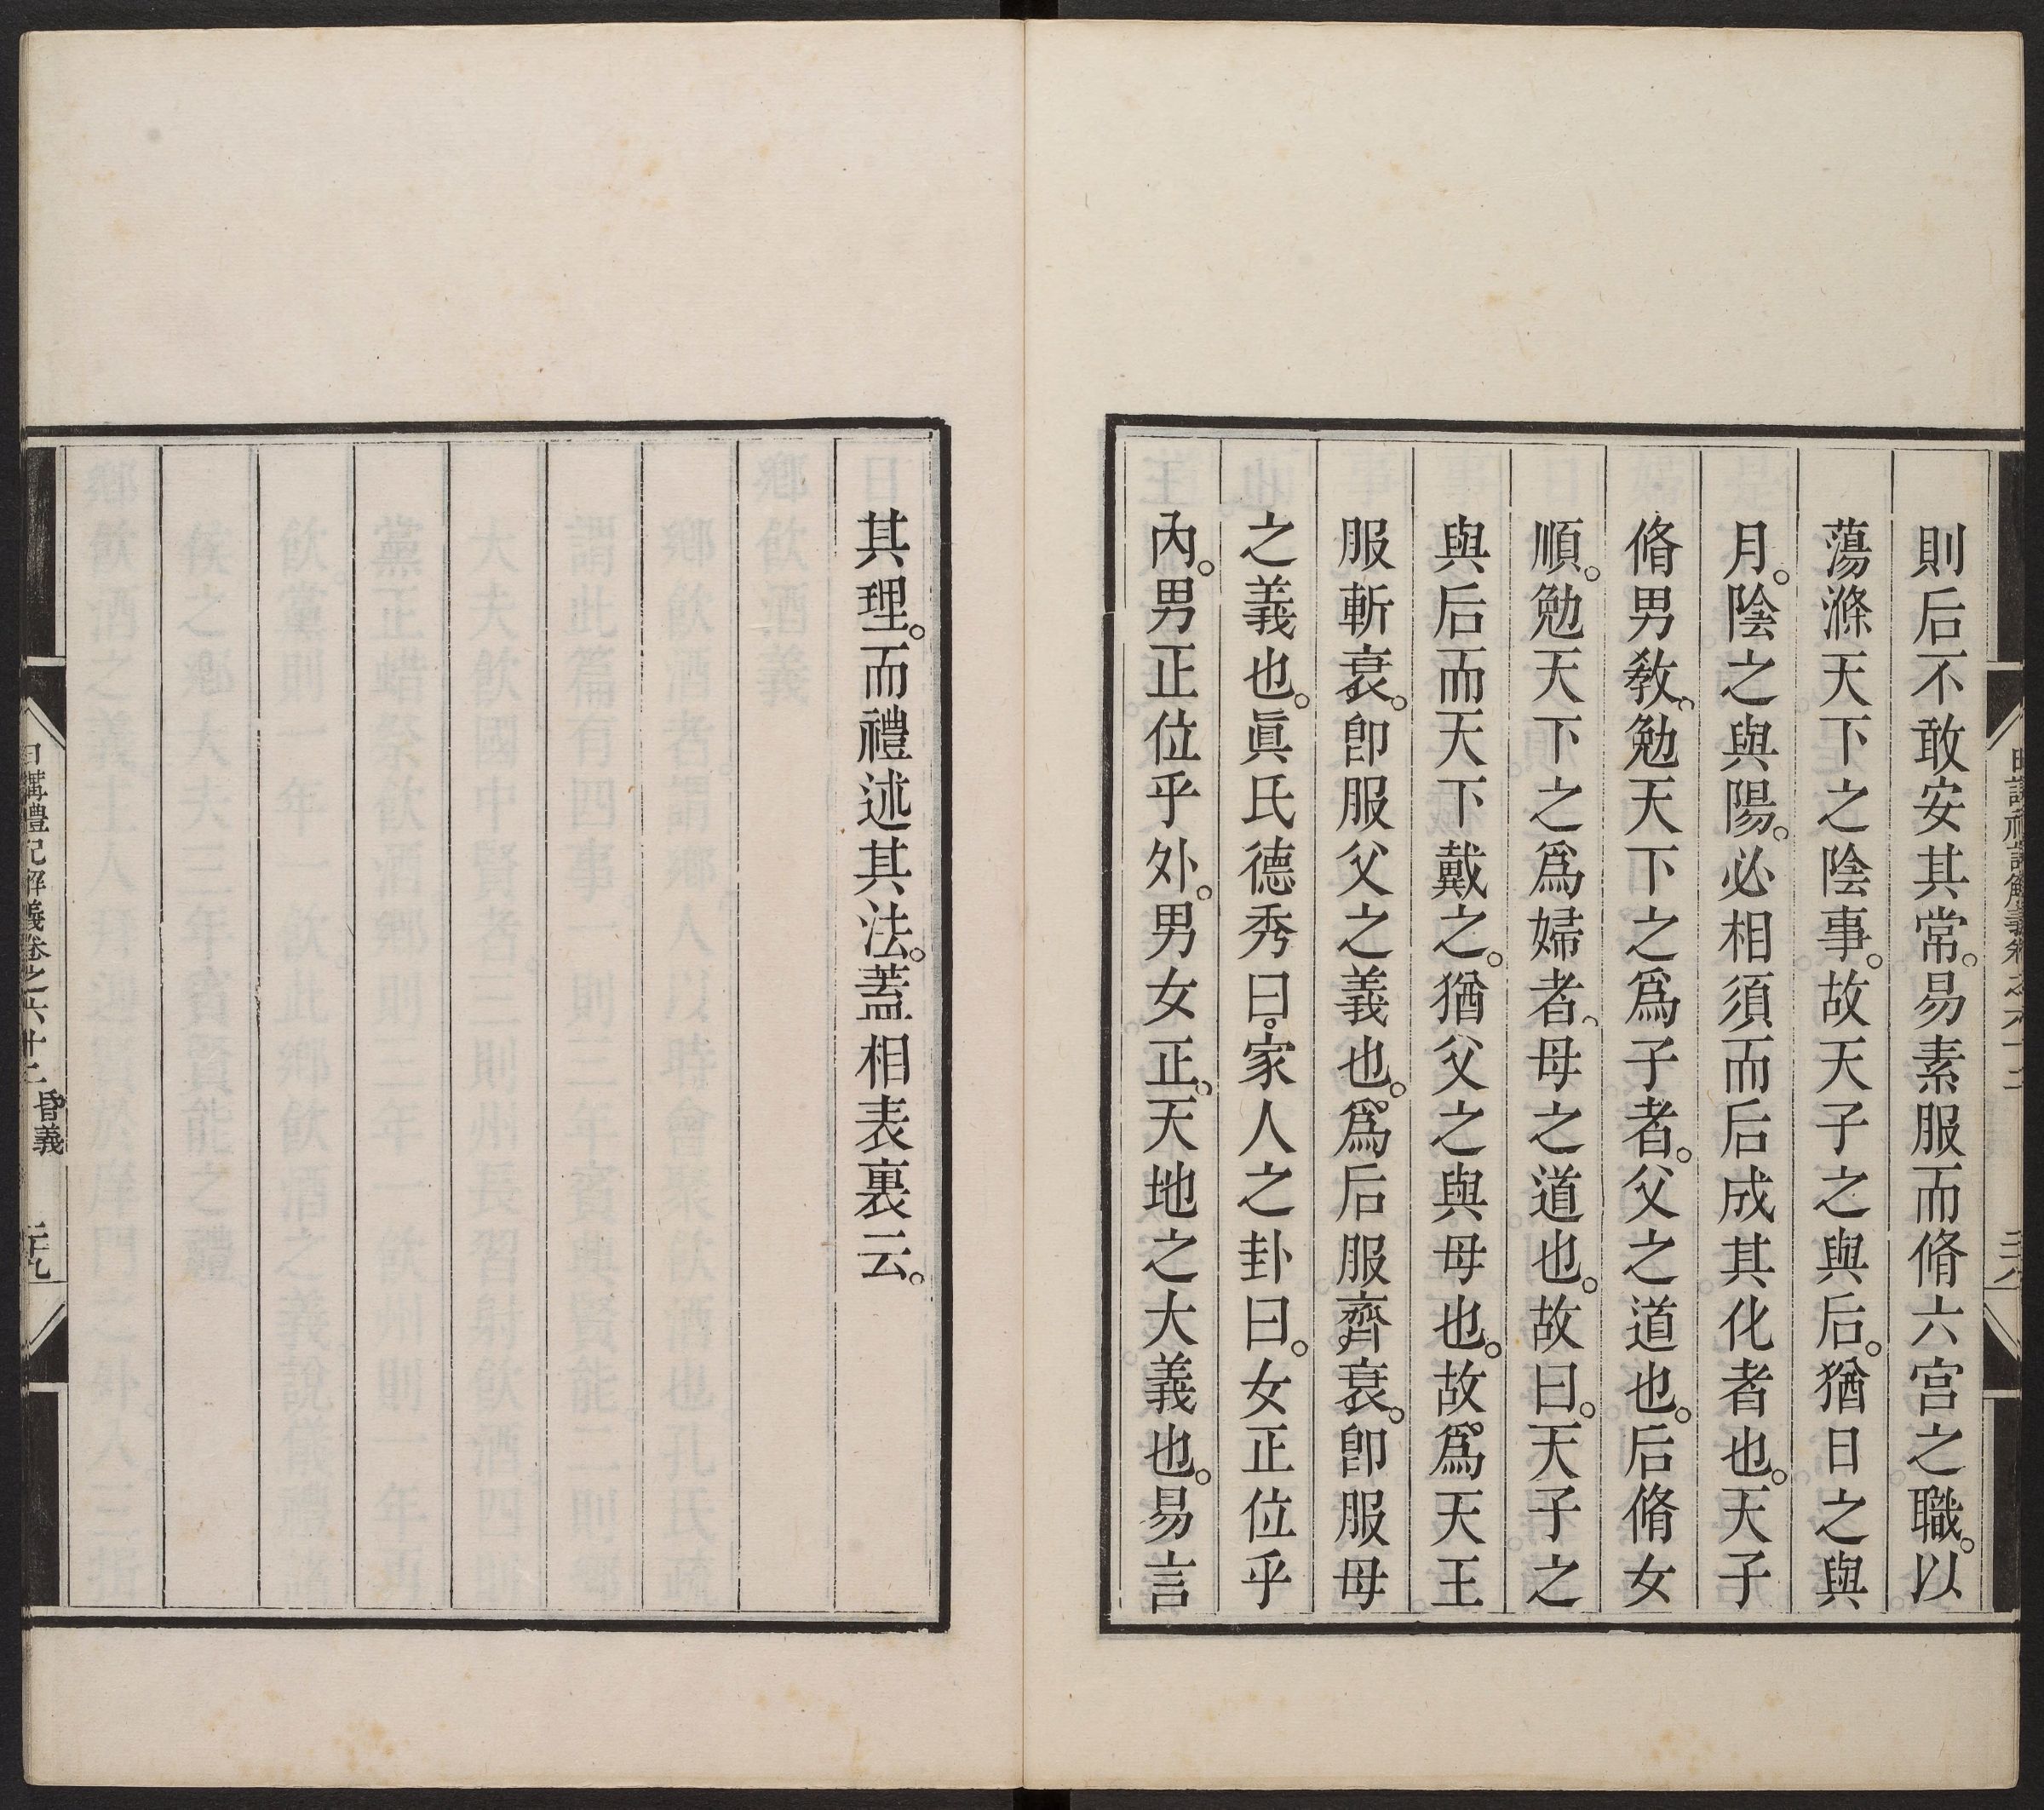 則后不敢安其常。易素服而脩六宮之職。以
蕩滌天下之陰事。故天子之與后。猶日之與
月。陰之與陽。必相須而后成其化者也。天子
脩男敎。勉天下之爲子者。父之道也。后脩女
順。勉天下之爲婦者。母之道也。故曰。天子之
與后而天下戴之。猶父之與母也。故爲天王
服斬衰。卽服父之義也。爲后服齊衰。卽服母
之義也。眞氏德秀曰。家人之卦曰。女正位乎
內。男正位乎外。男女正。天地之大義也。易言
其理。而禮述其法。蓋相表裏云。
日講禮記解義卷之六十二 昏義 三九